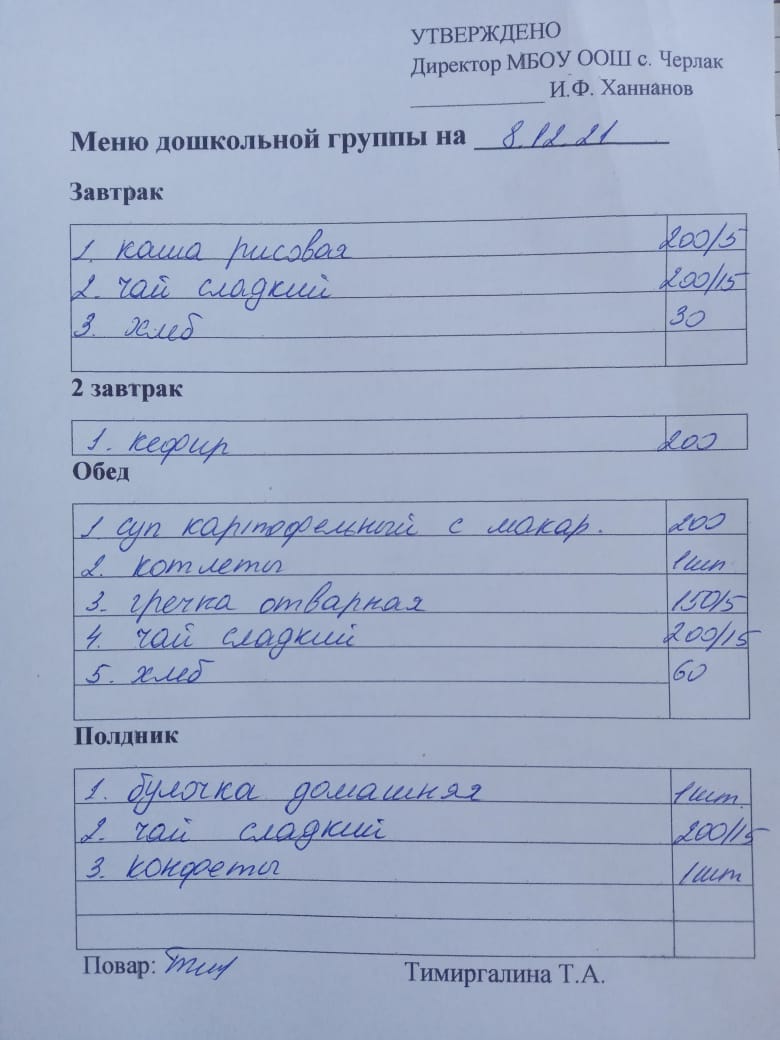 УТВЕРЖДЕНО
Директор МБОУ ООШ с. Черлак
____________ И.Ф. Ханнанов
Меню дошкольной группы на 8.12.21
Завтрак
1. каша рисовая 200/5
2. чай сладкий 200/15
3. хлеб 30
2 завтрак
1. кефир 200
Обед
1 суп картофельный с макар. 200
2. котлеты 1шт
3. гречка отварная 150/5
4. чай сладкий 200/15
5. хлеб 60
Полдник
1. булочка домашняя 1шт.
2. чай сладкий 200/15
3. конфеты 1шт
Повар: Тимиргалина Т.А.